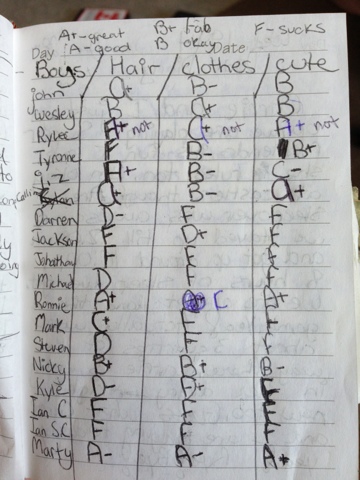 A+-great B+ fab F-sucks
Day A-good B okay Date
Boys Hair clothes cute
john C+ B- B
Wesley B C+ B
Rylee A+ not C+ not A++ not
Tyronne F B- B+
A+ B- C-
C+ B- C+
Darren D- F F
Jackson F D+ F
Jonathan F F F
Michael D F F
Ronnie A+ C A+
Mark C+ F F
Steven D F F
Nicky B+ B+ B-
Kyle D D+ F
Ian C F F F
Ian SC F F F
Marty A- A- A+